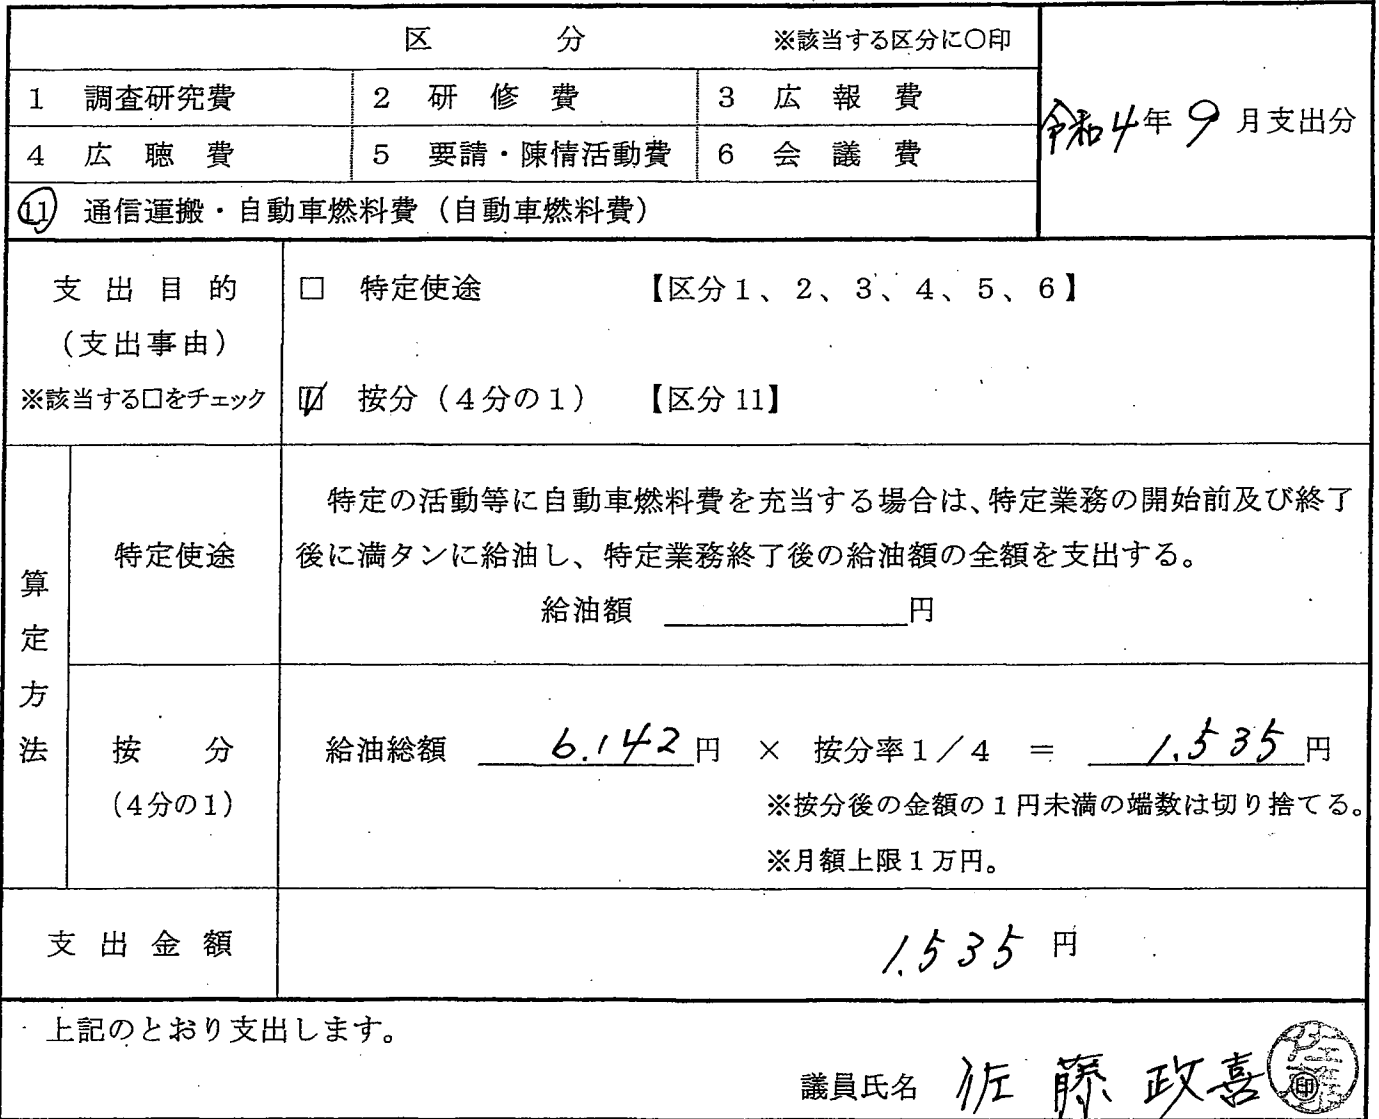 区　　　分　　　※該当する区分に○印
1　調査研究費　2　研　修　費　3　広　報　費
令和4年 9 月支出分
4　広　聴　費　5　要請・陳情活動費　6　会　議　費
⑪　通信運搬・自動車燃料費（自動車燃料費）
支 出 目 的　□　特定使途　【区分1、2、3、4、5、6】
（支出事由）
※該当する□をチェック　☑　按分（4分の1）　【区分 11】
算定方法
特定使途
特定の活動等に自動車燃料費を充当する場合は、特定業務の開始前及び終了
後に満タンに給油し、特定業務終了後の給油額の全額を支出する。
給油額　　　　　円
按　　分
（4分の1）
給油総額　6.142円　×　按分率1／4　＝　1.535円
※按分後の金額の1円未満の端数は切り捨てる。
※月額上限1万円。
支 出 金 額　1.535 円
上記のとおり支出します。
議員氏名　佐 藤 政喜 ㊞